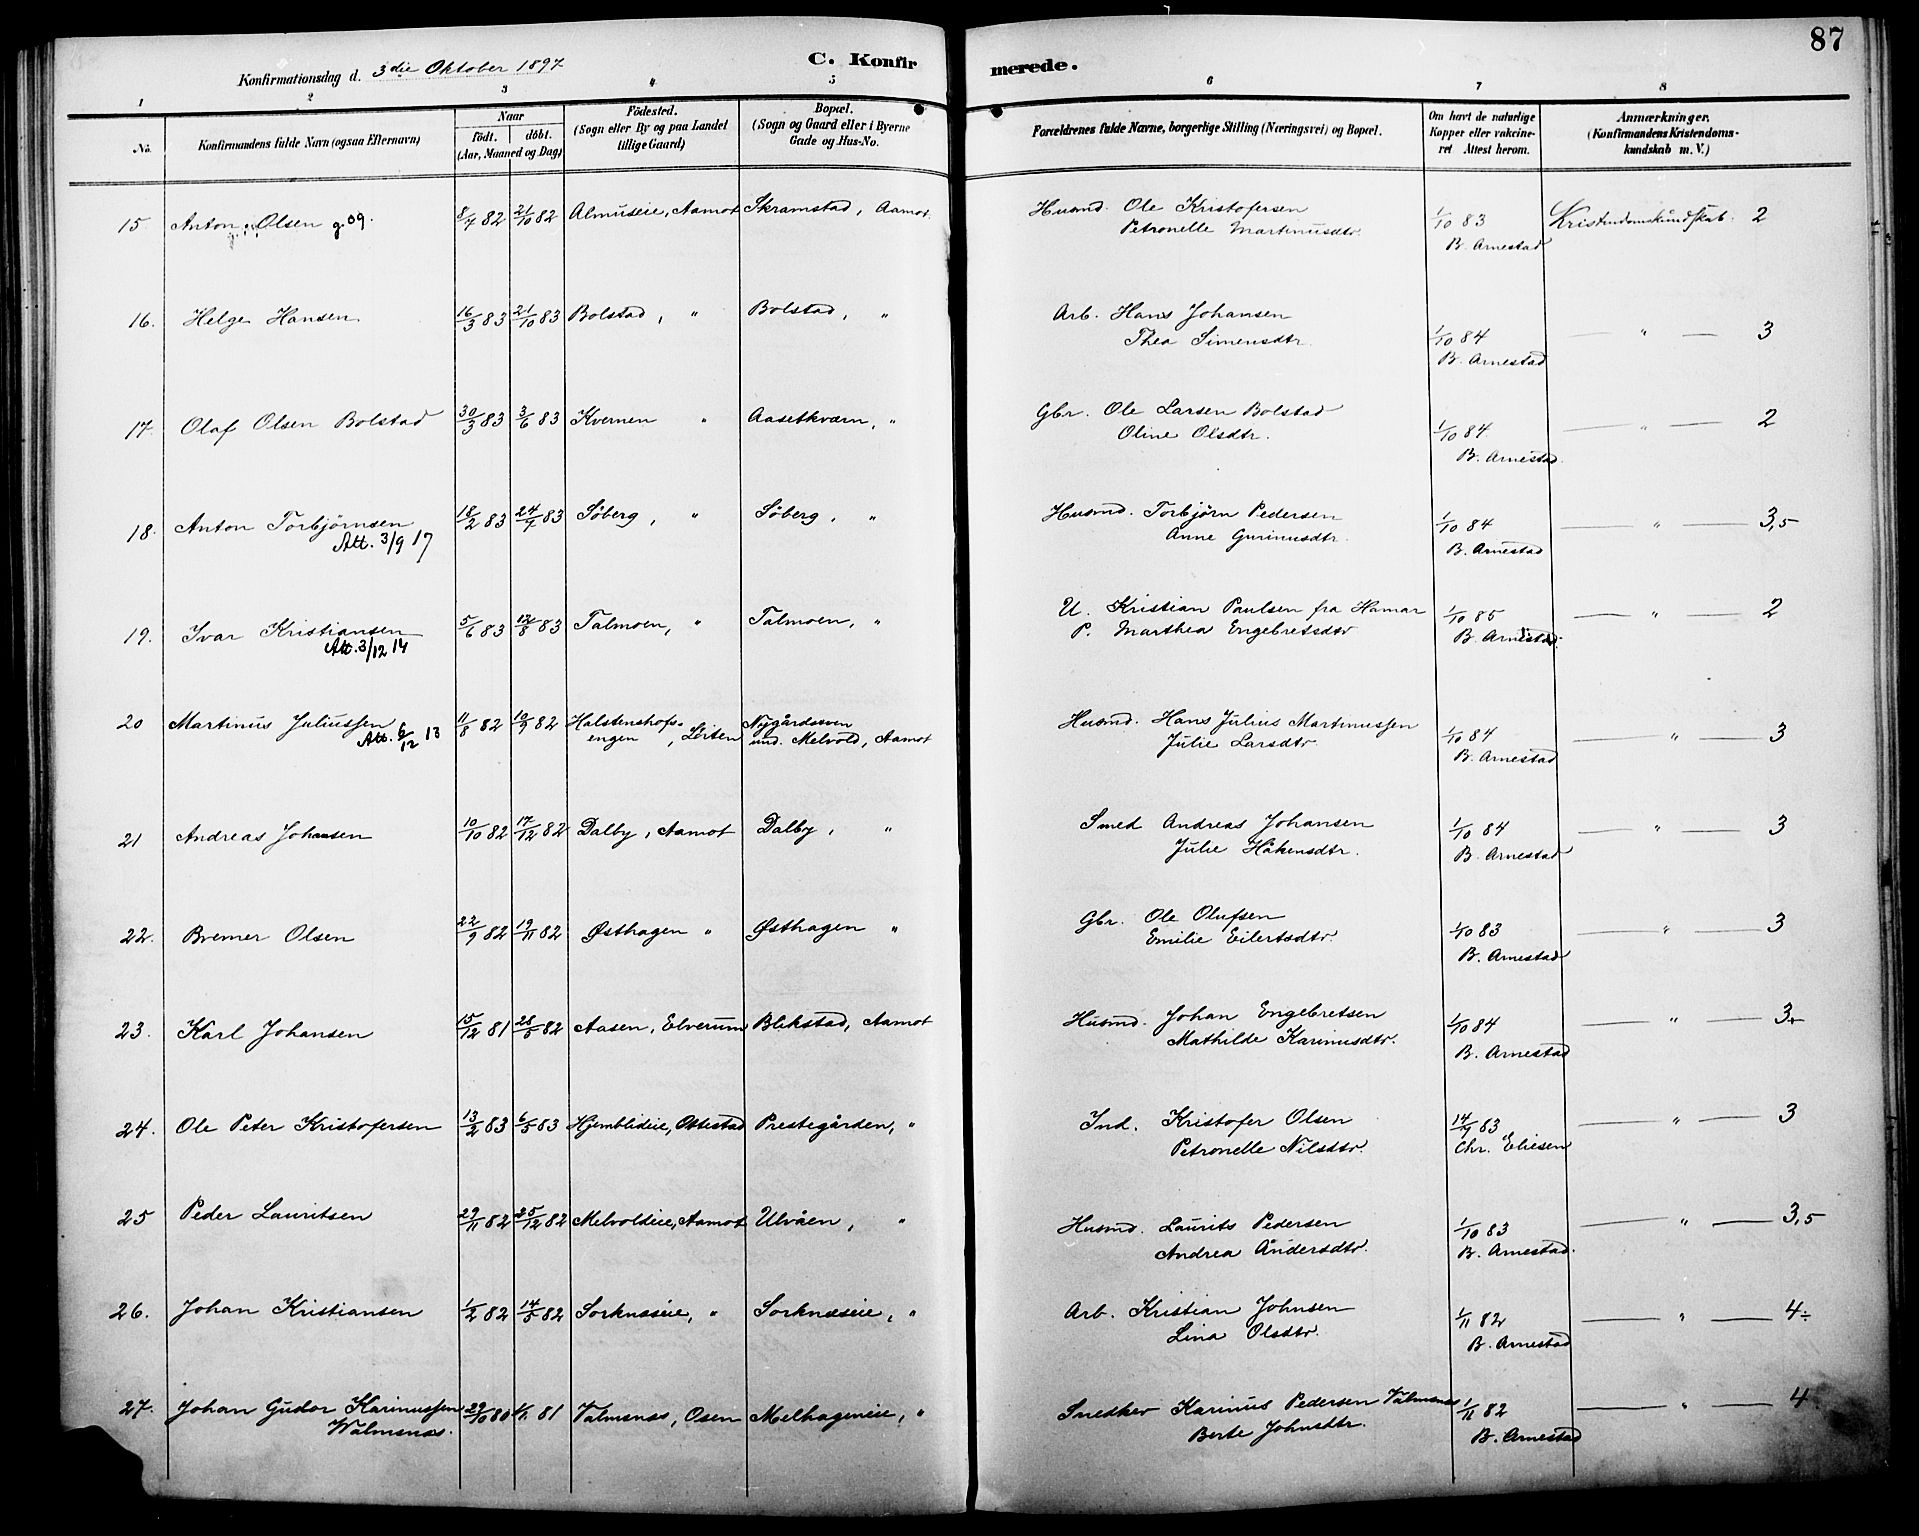 87
Konfirmationsdag d. 3die Oktober 1897
C. Konfir merede.
1 2 3 4 5 6 7 8
No.
Konfirmandens fulde Navn (ogsaa Efternavn)
Naar
födt. döbt.
(Aar, Maaned og Dag)
Födested.
(Sogn eller By og paa Landet
tillige Gaard)
Bopæl.
(Sogn og Gaard eller i Byerne
Gade og Hus-No.
Forældrenes fulde Navne, borgerlige Stilling (Næringsvei) og Bopæl.
Om havt de naturlige
Kopper eller vakcine-
ret Attest herom.
Anmærkninger.
(Konfirmandens Kristendoms-
kundskab m. V.)
15 Anton Olsen g. 09. 8/7 82 21/10 82 Almuseie, Aamot Skramstad, Aamot. Husmd. Ole Kristofersen 1/10 83 Kristendomskundskab. 2
Petronelle Martinusdtr. B. Arnestad
16. Helge Hansen. 16/3 83 21/10 83 Bolstad, " Bolstad, " Arb. Hans Johansen 1/10 84 " 3
Thea Simensdtr. B. Arnestad
17. Olaf Olsen Bolstad 30/3 83 3/6 83 Kvernen " Aasetkværn, " Gbr. Ole Larsen Bolstad 1/10 84. " 2
Oline Olsdtr. B. Arnestad.
18. Anton Torbjørnsen 18/2 83 24/7 83 Søberg, " Søberg, " Husmd. Torbjørn Pedersen 1/10 84 " 3,5
Att. 3/9 17 Anne Gurinusdtr. B. Arnestad
19. Ivar Kristiansen 5/6 83 12/8 83 Talmoen, " Talmoen, " U. Kristian Paulsen fra Hamar 1/10 85 " 2
Att. 3/12 14 P. Marthea Engebretsdtr B. Arnestad.
20 Martinus Juliussen 11/8 82 10/9 82 Halstenshofs- Nygårdssven Husmd. Hans Julius Martinussen 1/10 84 " 3
Att. 6/12 13 engen, Löiten und. Melvold, Aamot Julie Larsdtr. B. Arnestad
21 Andreas Johansen 10/10 82 17/12 82 Dalby, Aamot Dalby, " Smed Andreas Johansen 1/10 84 " 3
Julie Håkensdtr. B. Arnestad
22. Bremer Olsen 22/9 82 19/11 82 Østhagen " Østhagen " Gbr. Ole Olufsen 1/10 83 " 3
Emilie Eilertsdtr. B. Arnestad
23. Karl Johansen 15/12 81 28/5 82 Aasen, Elverum Blikstad, Aamot Husmd. Johan Engebretsen 1/10 84 " 3+
Mathilde Karinusdtr. B. Arnestad
24. Ole Peter Kristofersen 13/2 83 6/5 83 Hjemblideie, Ottestad Prestegården, " Ind. Kristofer Olsen 14/9 83 " 3
Petronelle Nilsdtr. Chr. Eliesen
25 Peder Lauritsen 29/11 82 25/12 82 Melvoldeie, Aamot Ulvåen, " Husmd. Laurits Pedersen 1/10 83 " 3,5
Andrea Andersdtr. B. Arnestad.
26. Johan Kristiansen 1/2 82 14/5 82 Sorknæseie, " Sorknæseie, " Arb. Kristian Johnsen 1/11 82 " 4÷
Lina Olsdtr. B. Arnestad
27. Johan Gudor Karinussen 29/10 80 81 Valmsnæs, Osen Melhageneie, " Snedker Karinus Pedersen Valmsnæs 1/11 82 " 4
Walmsnæs. Berte Johnsdtr. B. Arnestad